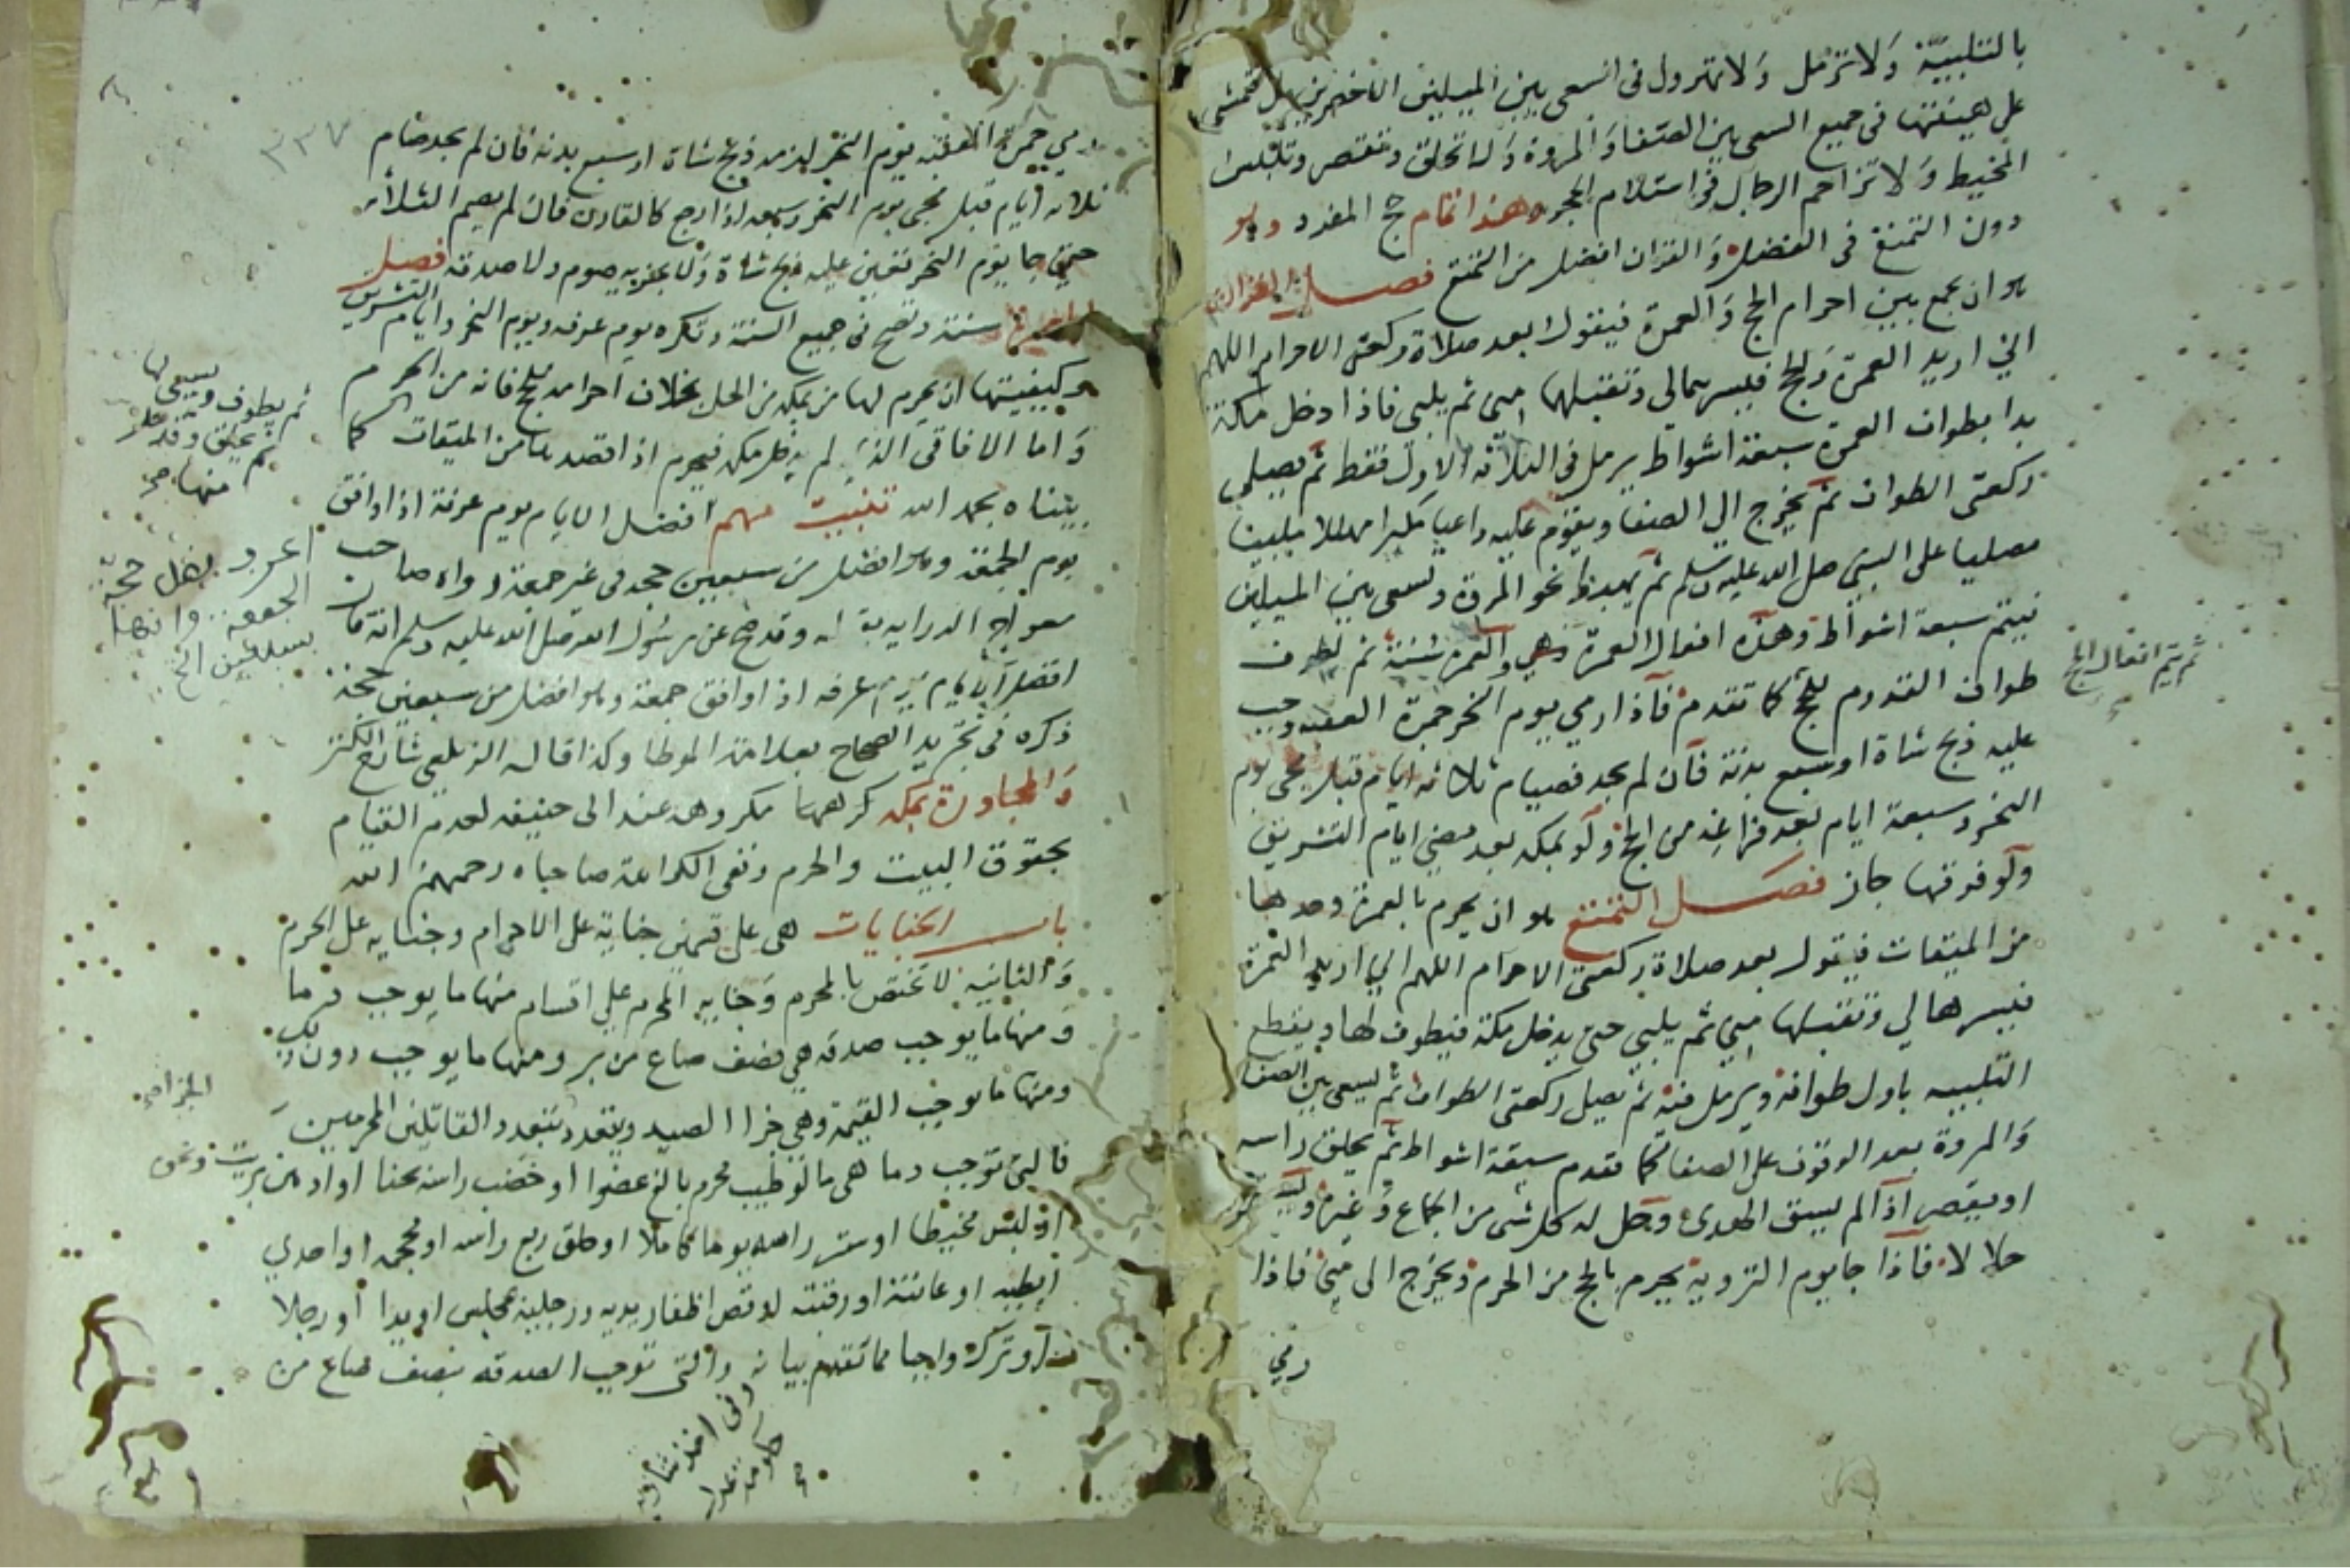 بالتلبية ولا ترمل ولا تهرول في السعي بين الميلين الاخضرين بل تمشي
على هينتها في جميع السعي بين الصفا والمروة ولا تحلق وتقصر وتلبس
المخيط ولا تزاحم الرجال في استلام الحجر وهذا تمام حج المفرد وهو
دون التمتع في الفضل والقران افضل من التمتع فصل القران
هو ان يجمع بين احرام الحج والعمرة فيقول بعد صلاة ركعتي الاحرام اللهم
اني اريد العمرة والحج فيسرهما لي وتقبلهما مني ثم يلبي فاذا دخل مكة
بدا بطواف العمرة سبعة اشواط يرمل في الثلاثة الاول فقط ثم يصلي
ركعتي الطواف ثم يخرج الى الصفا ويقوم عليه داعيا مكبرا مهللا ملبيا
مصليا على النبي صلى الله عليه وسلم ثم يهبط نحو المروة ويسعى بين الميلين
فيتم سبعة اشواط وهذه افعال العمرة وهي والعمرة سنة ثم يطوف
طواف القدوم للحج كما تقدم فاذا رمى يوم النحر جمرة العقبه وجب
ثم يتم افعال الحج
عليه ذبح شاة او سبع بدنة فان لم يجد فصيام ثلاثه ايام قبل مجي يوم
النحر وسبعة ايام بعد فراغه من الحج ولو بمكه بعد مضي ايام التشريق
ولو فرقها جاز فصل التمتع هو ان يحرم بالعمرة وحدها
من الميقات فيقول بعد صلاة ركعتي الاحرام اللهم اني اريد العمرة
فيسرها لي وتقبلها مني ثم يلبي حتى يدخل مكة فيطوف لها ويقطع
التلبيه باول طوافه ويرمل فيه ثم يصلي ركعتي الطواف ثم يسعى بين الصفا
والمروة بعد الوقوف على الصفا كما تقدم سبعة اشواط ثم يحلق راسه
او يقصر اذا لم يسق الهدى وحل له كل شى من الجماع وغيره
حلالا فاذا جا يوم التروية يحرم بالحج من الحرم ويخرج الى منى فاذا
رمى
٣٣٧
رمي جمرة العقبه يوم النحر لزمه ذبح شاة او سبع بدنه فان لم يجد صام
ثلاثه ايام قبل مجى يوم النحر وسبعه اذا رجع كالقارن فان لم يصم الثلاثه
حتى جا يوم النحر تعين عليه ذبح شاة ولا يجزيه صوم ولا صدقه فصل
العمرة سنة وتصح في جميع السنة وتكره يوم عرفه ويوم النحر وايام التشريق
وكيفيتها ان يحرم لها من مكه من الحل بخلاف احرامه للحج فانه من الحرم
واما الافاقي الذي لم يدخل مكه فيحرم اذا قصدها من الميقات كما
ثم يطوف ويسعى لها
ثم يحلق وقد حل
منها صح
بيناه بحمد الله تنبيه مهم افضل الايام يوم عرفة اذا وافق
يوم الجمعة وهو افضل من سبعين حجه في غير جمعة رواه صاحب
معراج الدرايه بقوله وقد صح عن رسول الله صلى الله عليه وسلم انه قال
افضل الايام يوم عرفه اذا وافق جمعة وهو افضل من سبعين حجة
ذكره في تجريد الصحاح بعلامة الموطا وكذا قاله الزيلعي شارح الكنز
والمجاورة بمكه مكروهه عند ابى حنيفه لعدم القيام
بحقوق البيت والحرم ونفى الكراهة صاحباه رحمهم الله
باب الجنايات هى على قسمين جناية على الاحرام وجنايه على الحرم
والثانيه لا تختص بالمحرم وجنايه المحرم على اقسام منها ما يوجب دما
ومنها ما يوجب صدقه هي نصف صاع من بر ومنها ما يوجب دون ذلك
ومنها ما يوجب القيمة وهي جزا الصيد ويتعدد بتعدد القاتلين المحرمين
الجزا صح
فالتي توجب دما هى ما لو طيب محرم بالغ عضوا او خضب راسه بحنا او ادهن بزيت ونحوه
او لبس مخيطا او ستر راسه يوما كاملا او حلق ربع راسه او محجمه او احدى
ابطيه او عانته او رقبته او قص اظفار يديه ورجليه بمجلس او يدا او رجلا
او ترك واجبا مما تقدم بيانه والتى توجب الصدقه بنصف صاع من
وفى اخذ شاربه
حكومة عدل